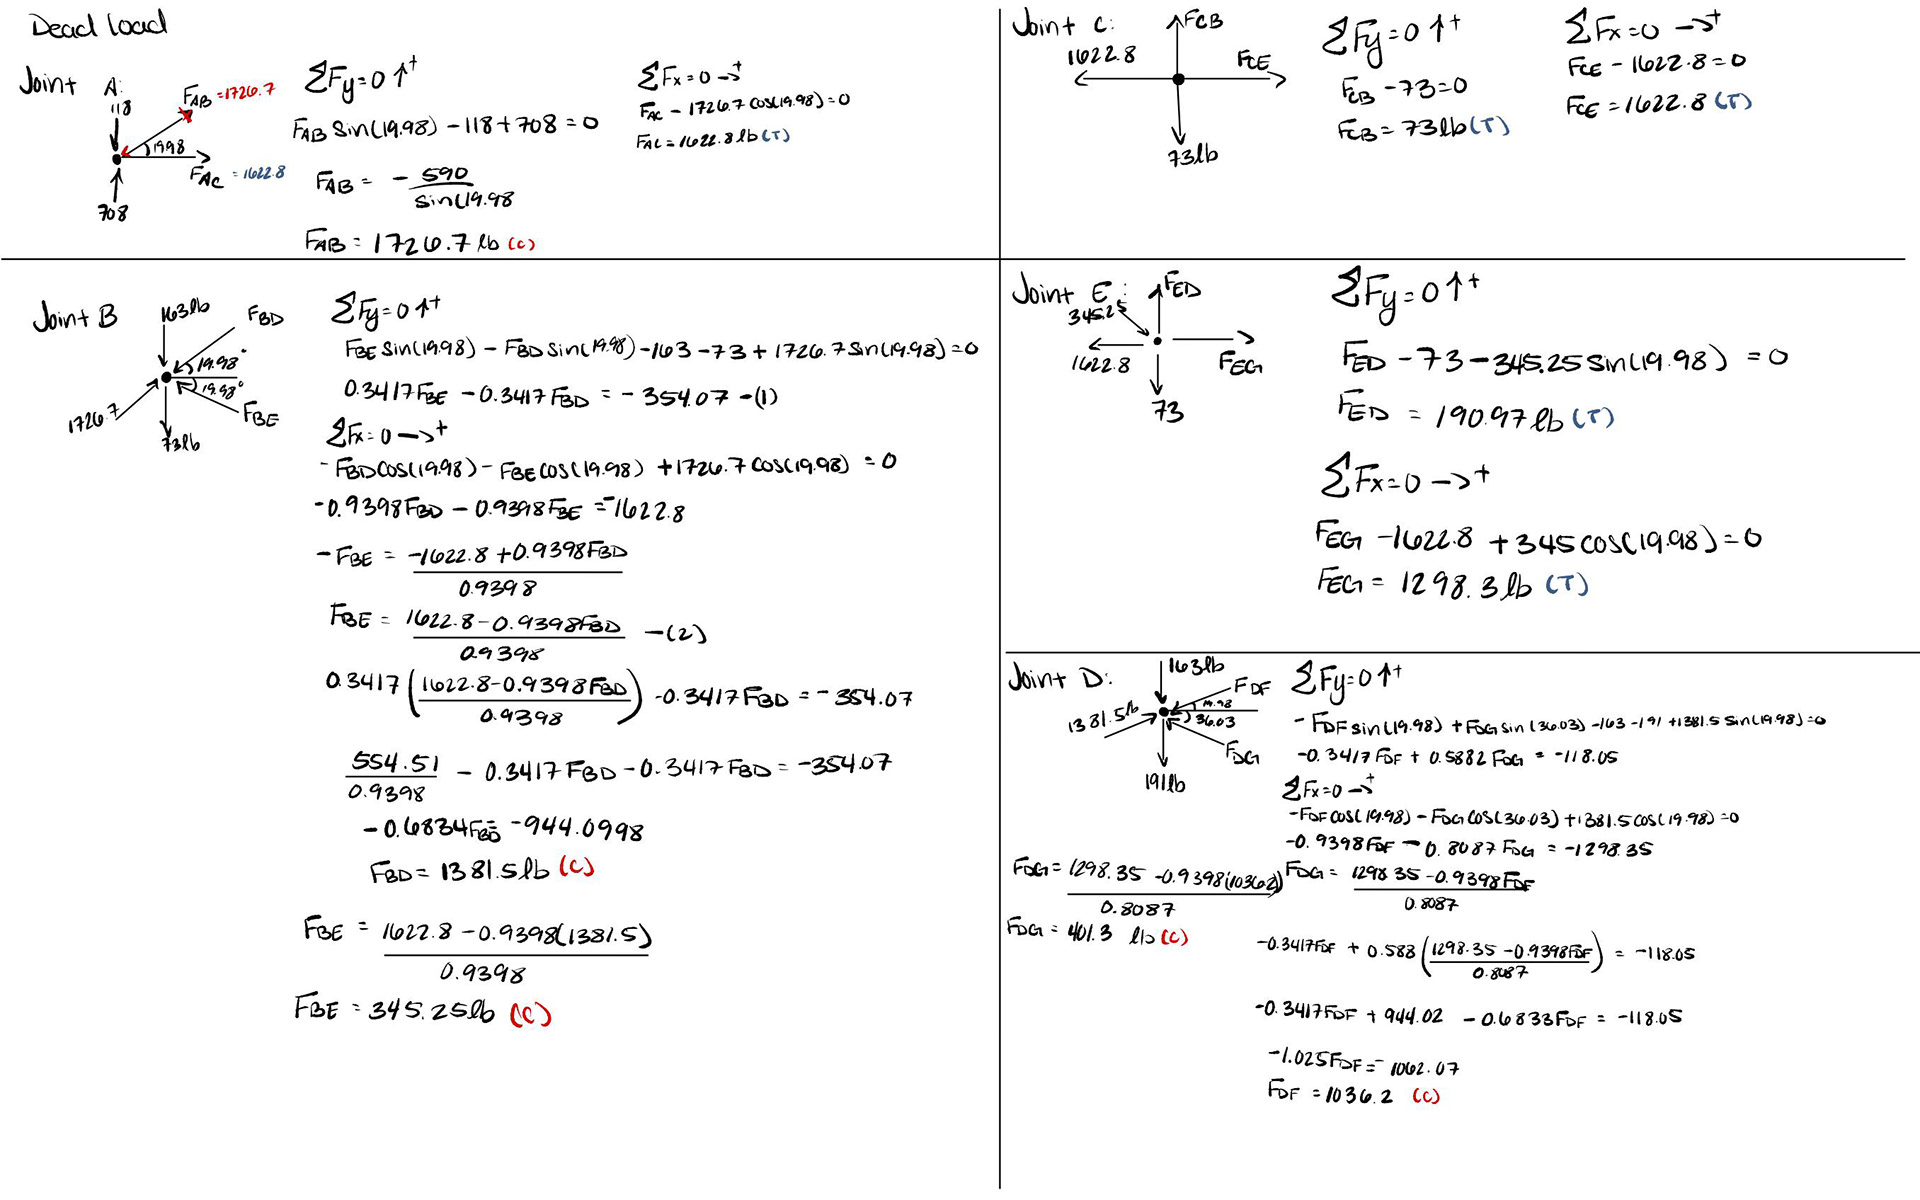 Dead load
Joint A:
118
FAB = 1726.7
19.98
FAC = 1622.8
708
ΣFy = 0 ↑+
FAB sin(19.98) - 118 + 708 = 0
FAB = - 590 / sin(19.98
FAB = 1726.7 lb (C)
ΣFx = 0 →+
FAC - 1726.7 cos(19.98) = 0
FAC = 1622.8 lb (T)
Joint B
163lb
FBD
19.98°
19.98°
FBE
1726.7
73lb
ΣFy = 0 ↑+
FBE sin(19.98) - FBD sin(19.98) - 163 - 73 + 1726.7 sin(19.98) = 0
0.3417 FBE - 0.3417 FBD = - 354.07 -(1)
ΣFx = 0 →+
- FBD cos(19.98) - FBE cos(19.98) + 1726.7 cos(19.98) = 0
-0.9398 FBD - 0.9398 FBE = -1622.8
- FBE = -1622.8 + 0.9398 FBD / 0.9398
FBE = 1622.8 - 0.9398 FBD / 0.9398 -(2)
0.3417 (1622.8 - 0.9398 FBD / 0.9398) - 0.3417 FBD = - 354.07
554.51 / 0.9398 - 0.3417 FBD - 0.3417 FBD = -354.07
-0.6834 FBD = -944.0998
FBD = 1381.5 lb (C)
FBE = 1622.8 - 0.9398(1381.5) / 0.9398
FBE = 345.25 lb (C)
Joint C:
FCB
1622.8
FCE
73lb
ΣFy = 0 ↑+
FCB - 73 = 0
FCB = 73 lb (T)
ΣFx = 0 →+
FCE - 1622.8 = 0
FCE = 1622.8 (T)
Joint E:
FED
345.25
1622.8
FEG
73
ΣFy = 0 ↑+
FED - 73 - 345.25 sin(19.98) = 0
FED = 190.97 lb (T)
ΣFx = 0 →+
FEG - 1622.8 + 345 cos(19.98) = 0
FEG = 1298.3 lb (T)
Joint D:
163lb
FDF
19.98
36.03
1381.5 lb
FDG
191lb
ΣFy = 0 ↑+
- FDF sin(19.98) + FDG sin(36.03) - 163 - 191 + 1381.5 sin(19.98) = 0
-0.3417 FDF + 0.5882 FDG = -118.05
ΣFx = 0 →+
- FDF cos(19.98) - FDG cos(36.03) + 1381.5 cos(19.98) = 0
-0.9398 FDF - 0.8087 FDG = -1298.35
FDG = 1298.35 - 0.9398 FDF / 0.8087
-0.3417 FDF + 0.588 (1298.35 - 0.9398 FDF / 0.8087) = -118.05
-0.3417 FDF + 944.02 - 0.6833 FDF = -118.05
-1.025 FDF = -1062.07
FDF = 1036.2 (C)
FDG = 1298.35 - 0.9398(1036.2) / 0.8087
FDG = 401.3 lb (C)